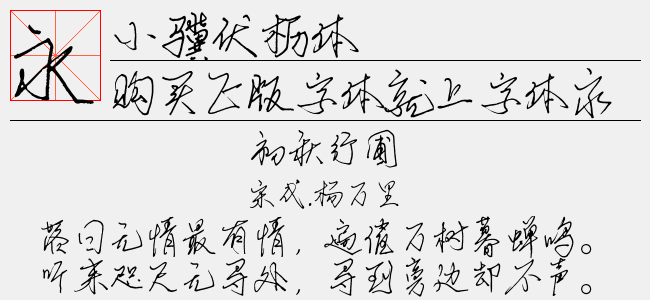 永
小骥伏枥体
购买正版字体就上字体家
初秋行圃
宋代.杨万里
落日无情最有情，遍催万树暮蝉鸣。
听来咫尺无寻处，寻到旁边却不声。